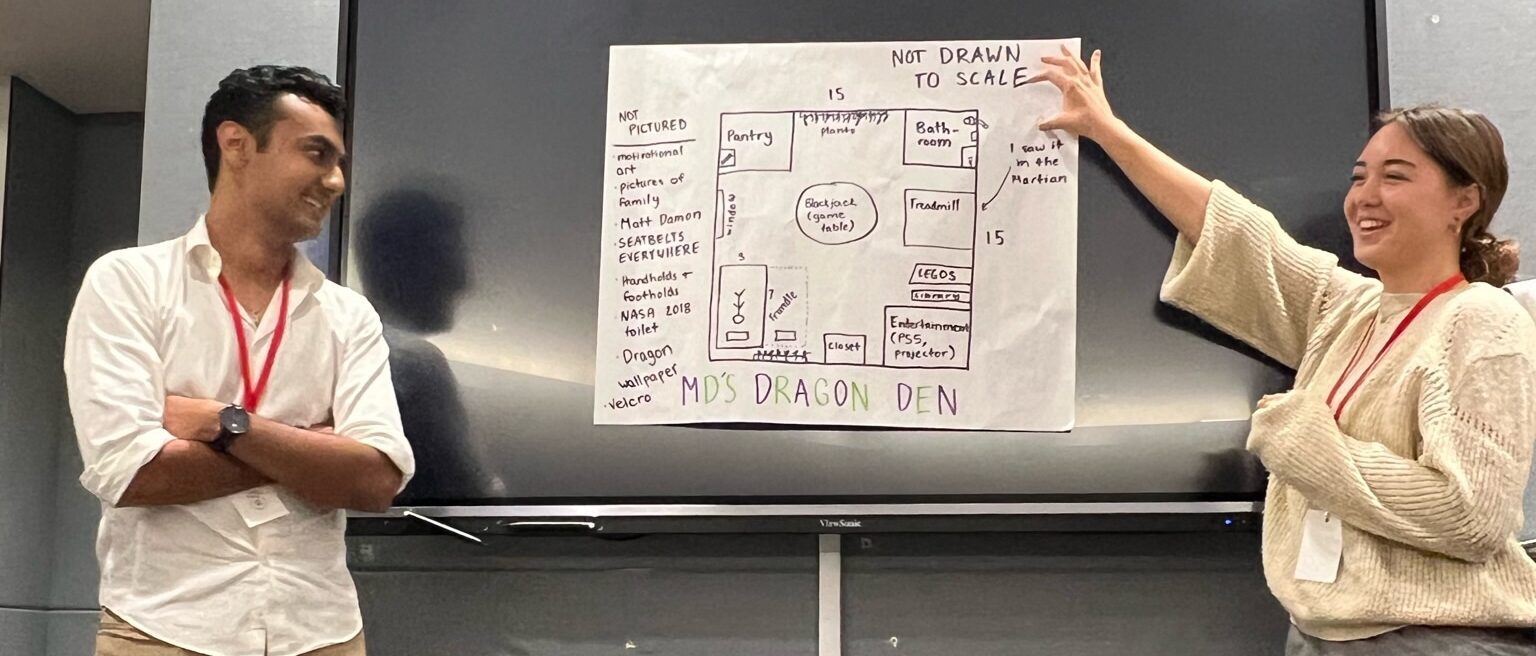 NOT DRAWN
TO SCALE
15
NOT
PICTURED
· motivational
art
· pictures of
family
· Matt Damon
· SEATBELTS
EVERYWHERE
· Handholds +
footholds
· NASA 2018
toilet
· Dragon
wallpaper
· velcro
Pantry
Plants
Bath-
room
I saw it
in the
Martian
window
Blackjack
(game
table)
Treadmill
15
3
7
Trundle
LEGOS
Library
Entertainment
(PS5,
projector)
closet
MD'S DRAGON DEN
ViewSonic